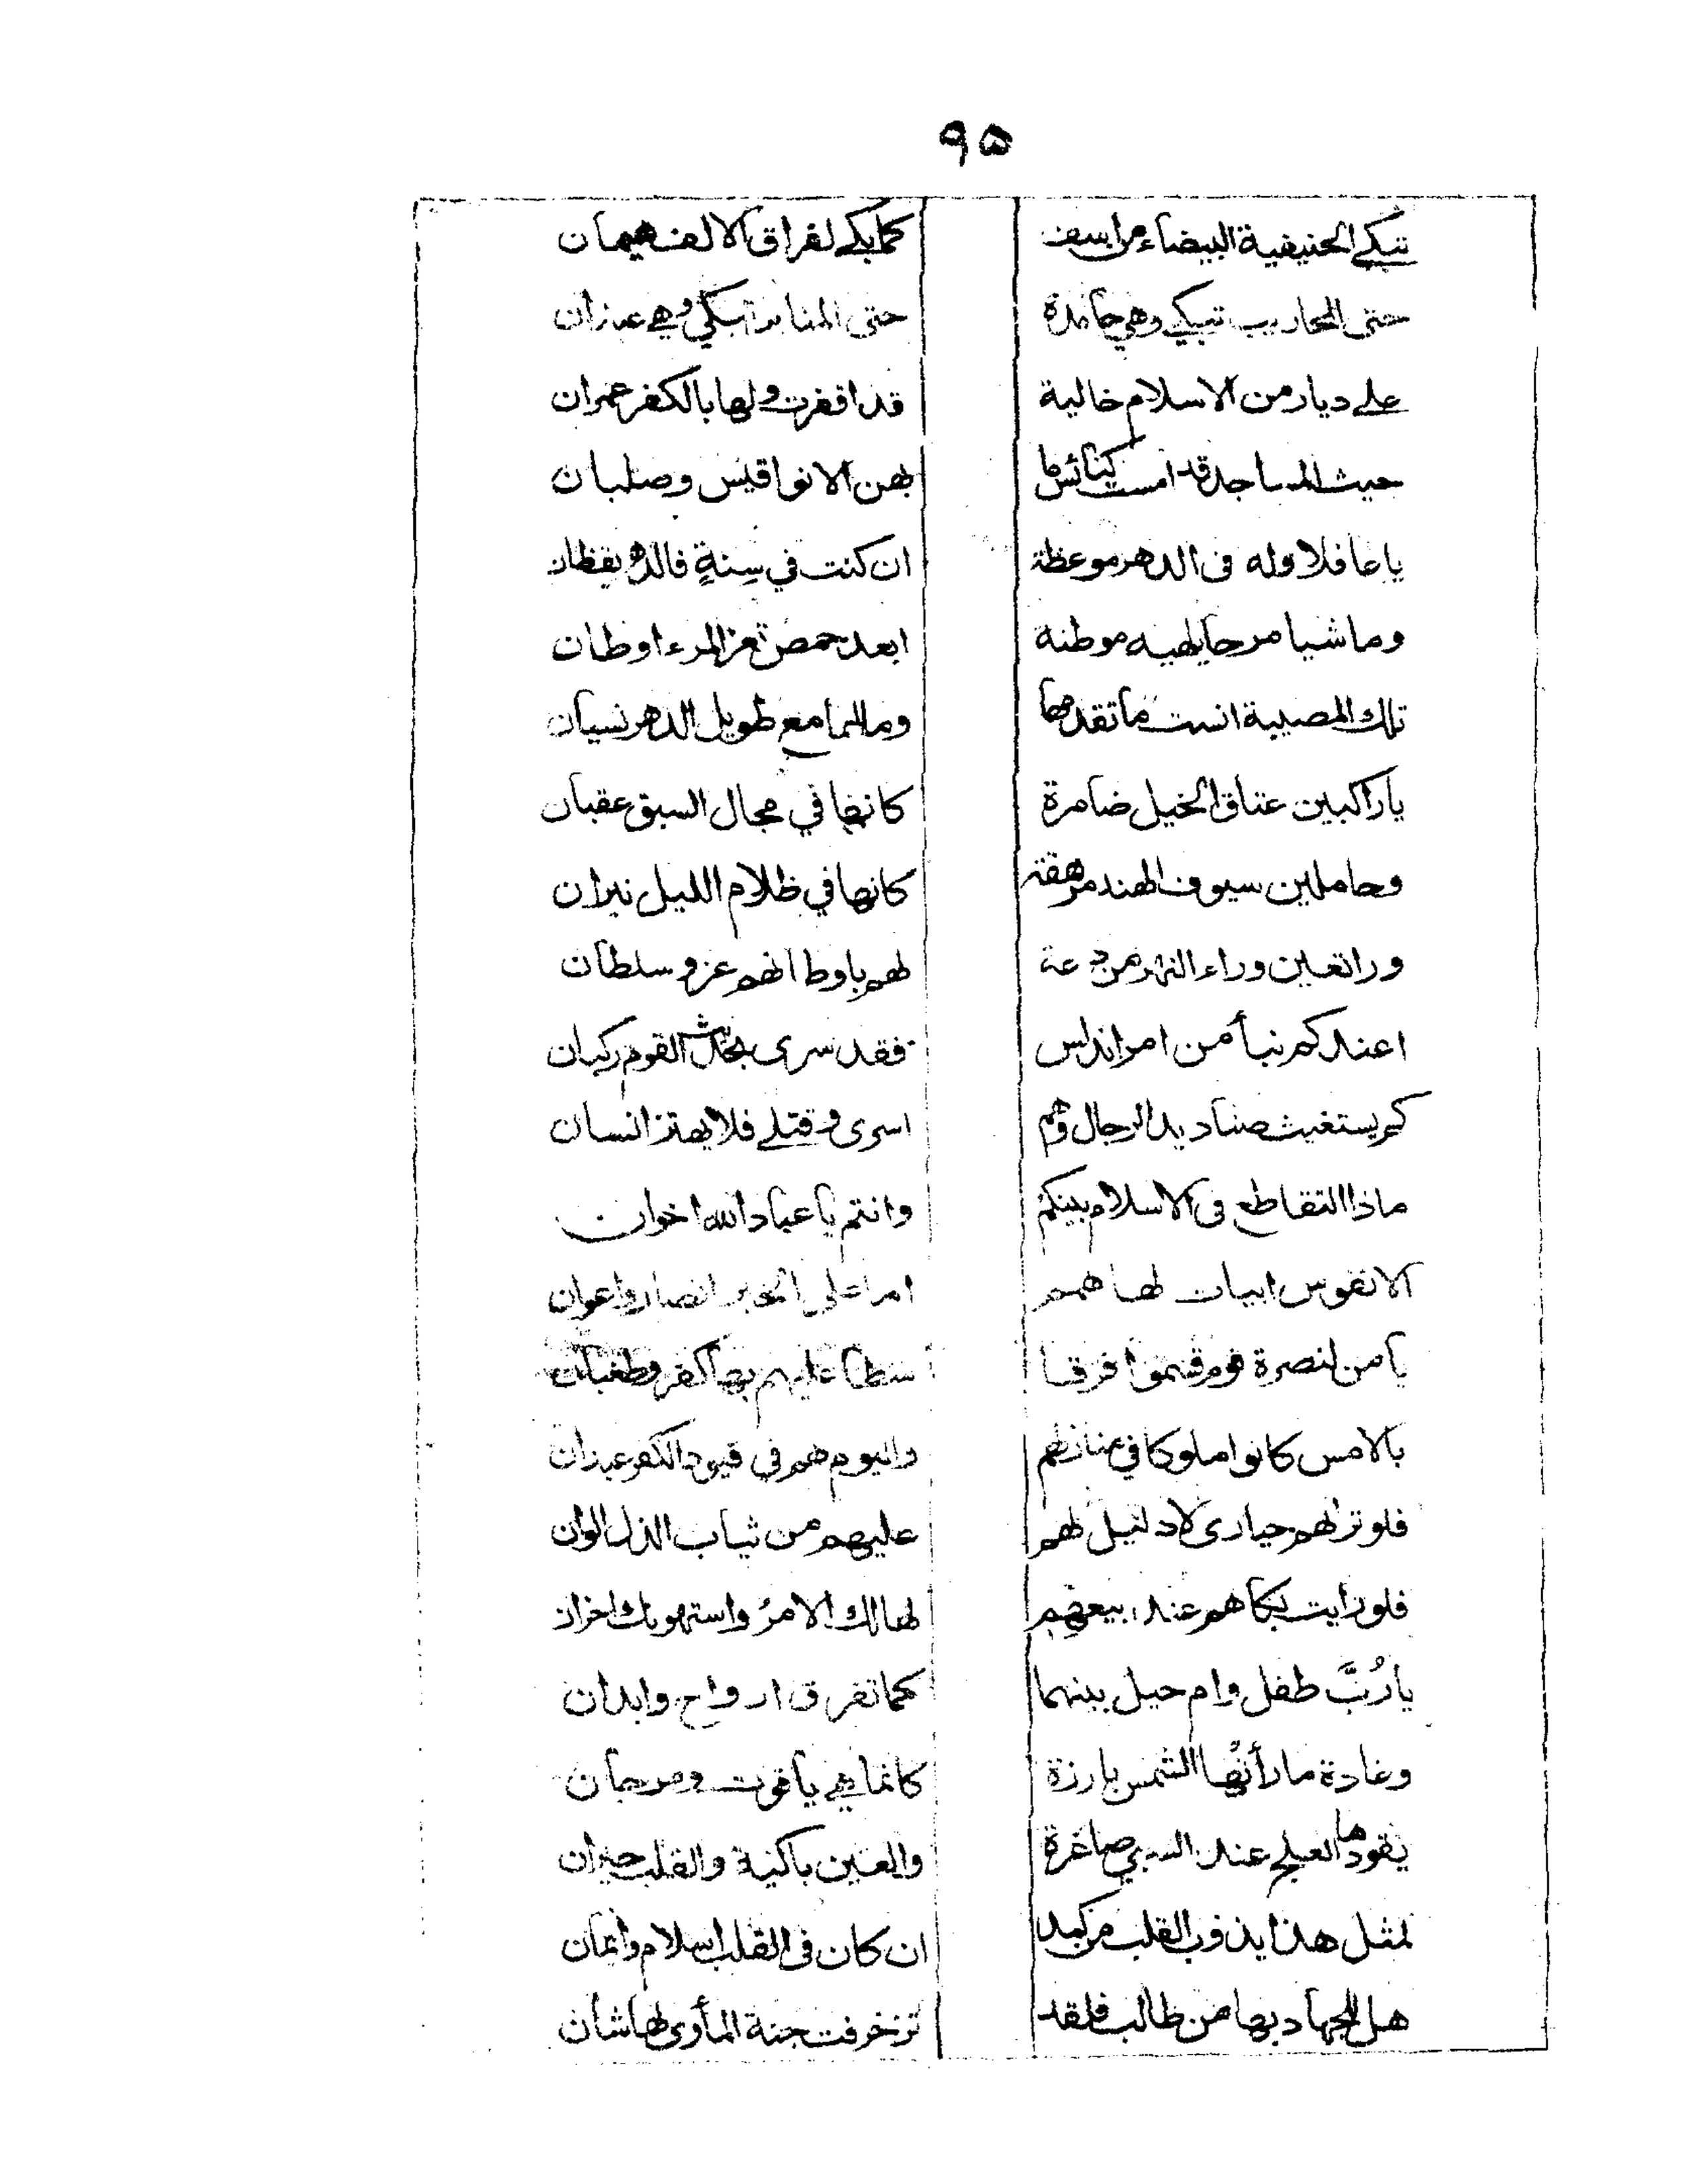 ٩٥
تبكي الحنيفية البيضاء من اسف كما بكى لفراق الالف هيمان
حتى المحاريب تبكي وهي جامدة حتى المنابر تبكي وهي عيدان
على ديار من الاسلام خالية قد اقفرت ولها بالكفر عمران
حيث المساجد قد امست كنائس ما بهن الا نواقيس وصلبان
يا غافلا وله فى الدهر موعظة ان كنت في سِنةٍ فالدهر يقظان
وماشيا مرحا يلهيه موطنه ابعد حمص تعز المرء اوطان
تلك المصيبة انست ما تقدمها وما لها مع طويل الدهر نسيان
يا راكبين عتاق الخيل ضامرة كانها في مجال السبق عقبان
وحاملين سيوف الهند مرهقة كانها في ظلام الليل نيران
وراتعين وراء النهر من دعة لهم باوطانهم عز و سلطان
اعندكم نبأ من امر اندلس فقد سرى بحديث القوم ركبان
كم يستغيث صناديد الرجال وهم اسرى و قتلى فلا يهتز انسان
ماذا التقاطع فى الاسلام بينكم وانتم يا عباد الله اخوان
الا نفوس ابيات لها همم اما على الخير انصار واعوان
يا من لنصرة قوم قسموا فرقا سطا عليهم بها كفر وطغيان
بالامس كانوا ملوكا في منازلهم واليوم هم في قيود الكفر عبدان
فلو تراهم حيارى لا دليل لهم عليهم من ثياب الذل الوان
فلو رايت بكاهم عند بيعهم لهالك الامرُ واستهوتك احزان
يا رُبَّ طفل وام حيل بينهما كما تفرق ارواح وابدان
وغادة ما رأتها الشمس بارزة كانما هي ياقوت ومرجان
يقودها العلج عند السبي صاغرة والعين باكية والقلب حيران
لمثل هذا يذوب القلب من كمد ان كان فى القلب اسلام وايمان
هل للجهاد بها من طالب فلقد تزخرفت جنة المأوى لها شان